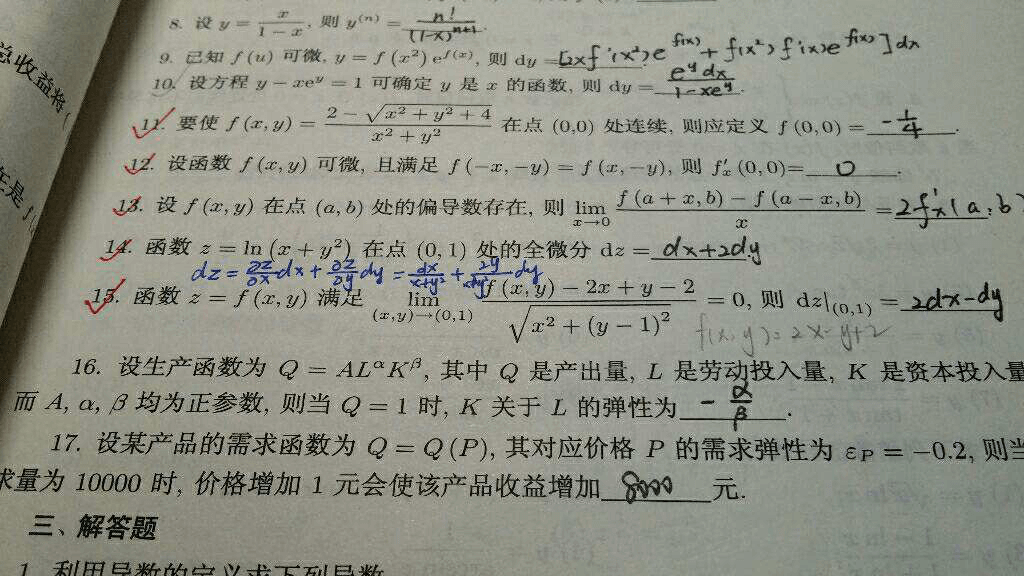 总收益将(
8. 设 y = x/(1-x), 则 y^(n) = n!/(1-x)^{n+1}.
9. 已知 f(u) 可微, y = f(x²)e^{f(x)}, 则 dy = [2xf'(x²)e^{f(x)} + f(x²)f'(x)e^{f(x)}]dx
10. 设方程 y - xe^y = 1 可确定 y 是 x 的函数, 则 dy = e^y dx/(1-xe^y).
11. 要使 f(x,y) = (2-√(x²+y²+4))/(x²+y²) 在点 (0,0) 处连续, 则应定义 f(0,0) = -1/4.
在是 f
12. 设函数 f(x,y) 可微, 且满足 f(-x,-y) = f(x,-y), 则 f'ₓ(0,0)= 0.
13. 设 f(x,y) 在点 (a,b) 处的偏导数存在, 则 lim_{x→0} (f(a+x,b) - f(a-x,b))/x = 2f'x(a,b)
14. 函数 z = ln(x+y²) 在点 (0,1) 处的全微分 dz = dx+2dy.
dz = ∂z/∂x dx + ∂z/∂y dy = dx/(x+y²) + 2y/(x+y²) dy
15. 函数 z = f(x,y) 满足 lim_{(x,y)→(0,1)} (f(x,y) - 2x + y - 2)/√(x²+(y-1)²) = 0, 则 dz|_(0,1) = 2dx-dy
f(x,y)=2x-y+2
16. 设生产函数为 Q = AL^αK^β, 其中 Q 是产出量, L 是劳动投入量, K 是资本投入量
而 A, α, β 均为正参数, 则当 Q = 1 时, K 关于 L 的弹性为 -α/β.
17. 设某产品的需求函数为 Q = Q(P), 其对应价格 P 的需求弹性为 ε_P = -0.2, 则当
求量为 10000 时, 价格增加 1 元会使该产品收益增加 8000 元.
三、解答题
1. 利用导数的定义求下列导数